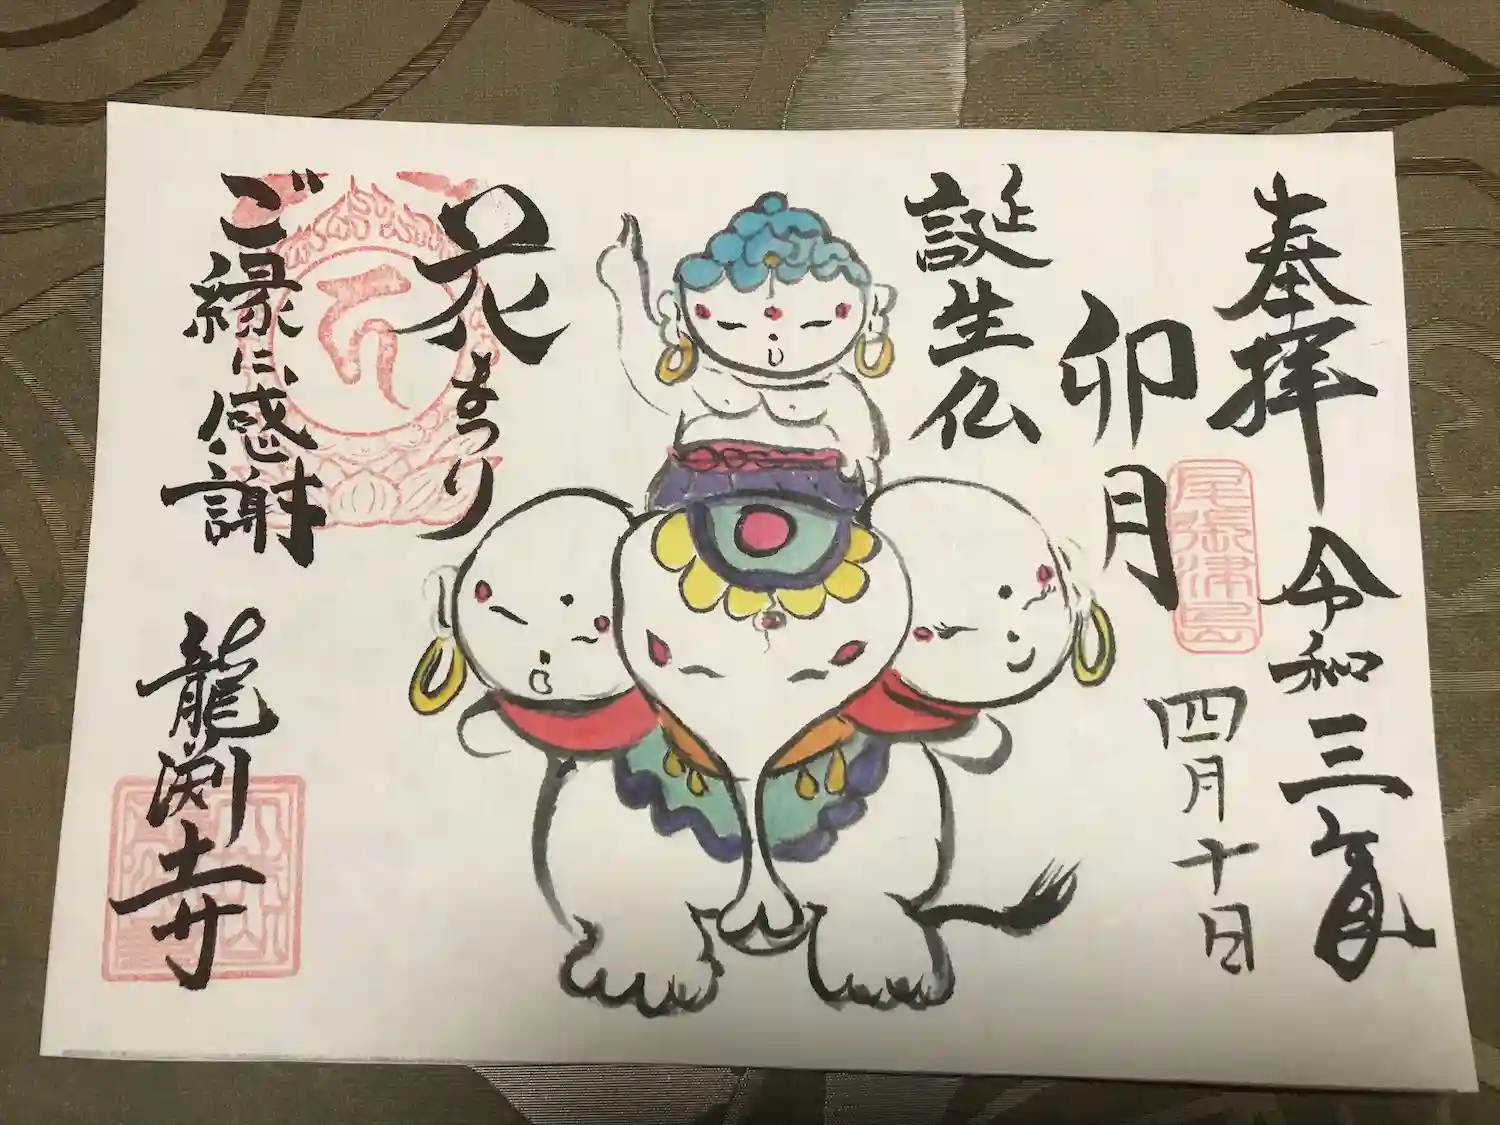 奉拝
令和三年
四月十日
卯月
尾張津島
誕生仏
花まつり
ご縁に感謝
龍渕寺